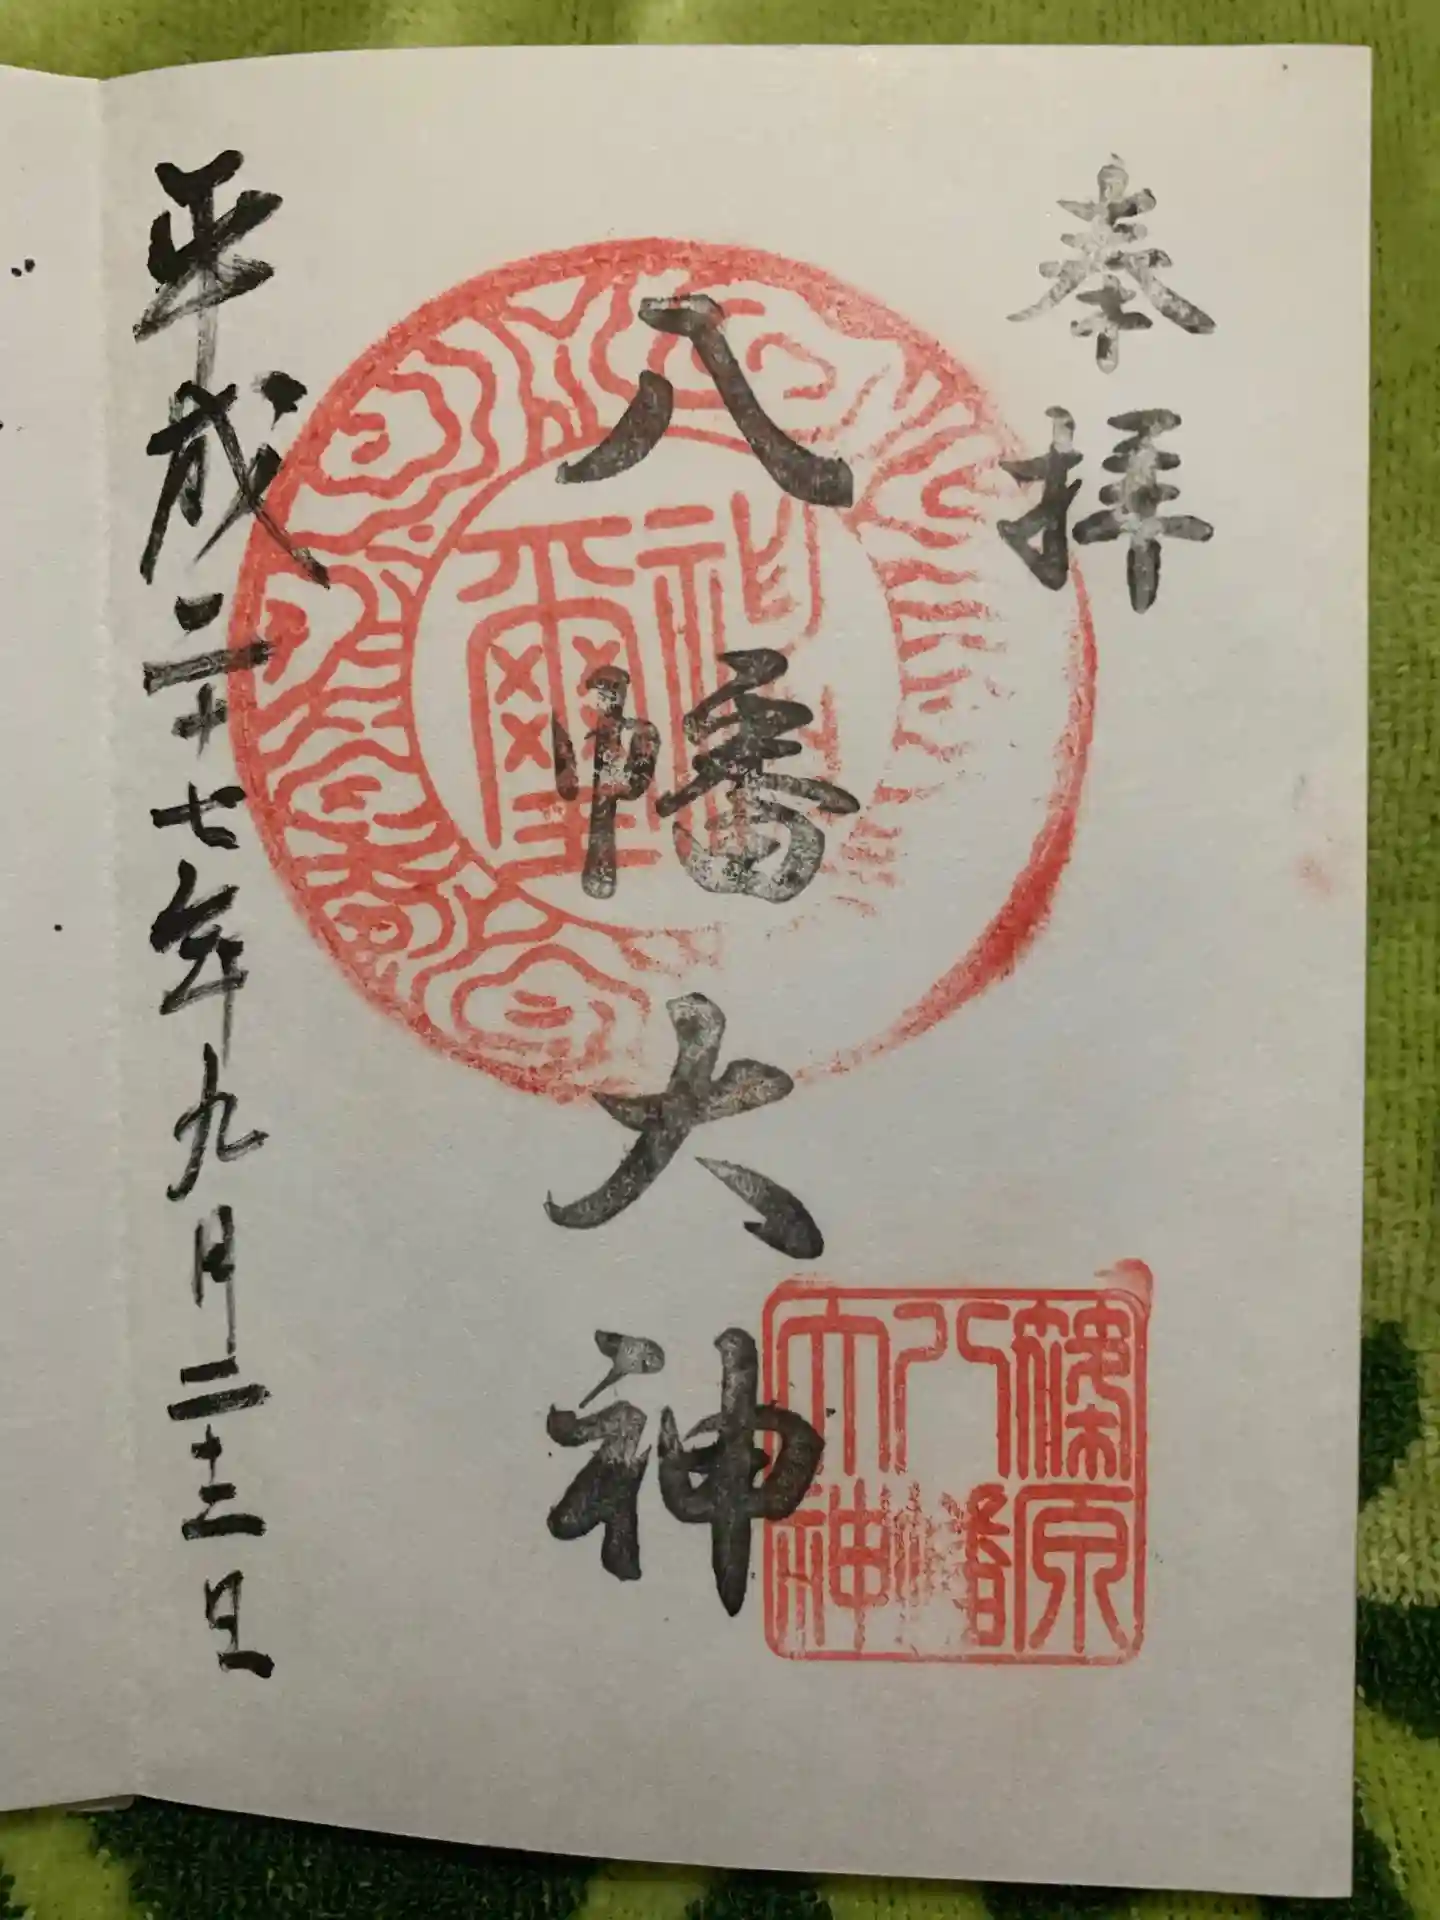 奉拝
八幡大神
篠原
八幡
大神
平成二十七年九月二十二日